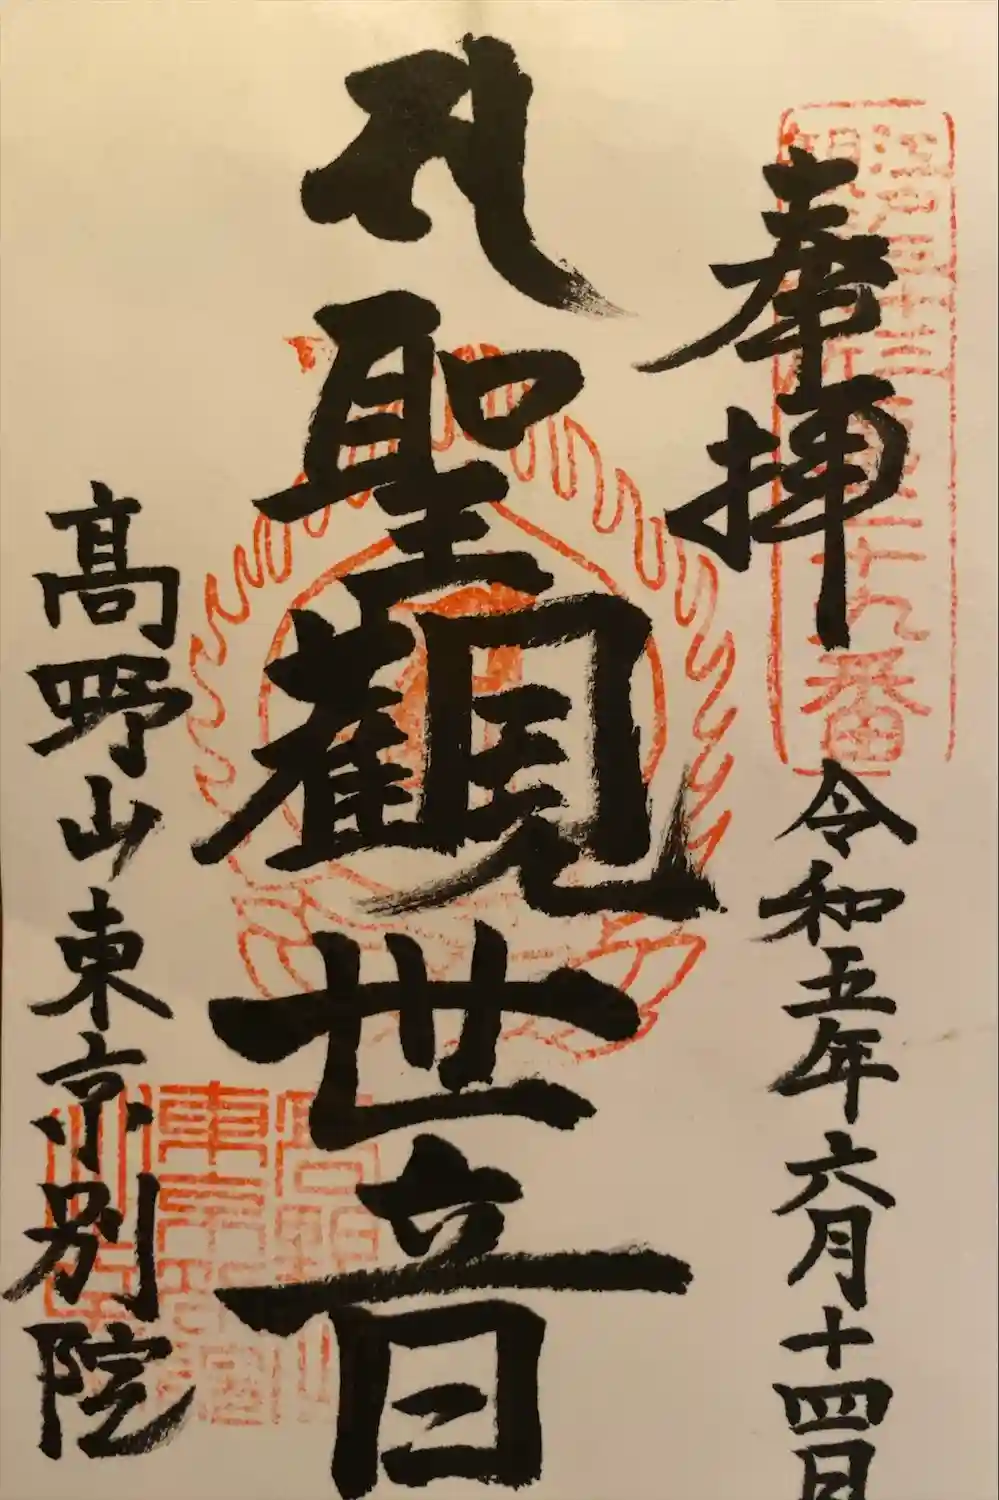 江戸三十三
二十九番
奉拝
令和五年六月十四日
𑖭
聖観世音
髙野山東京別院